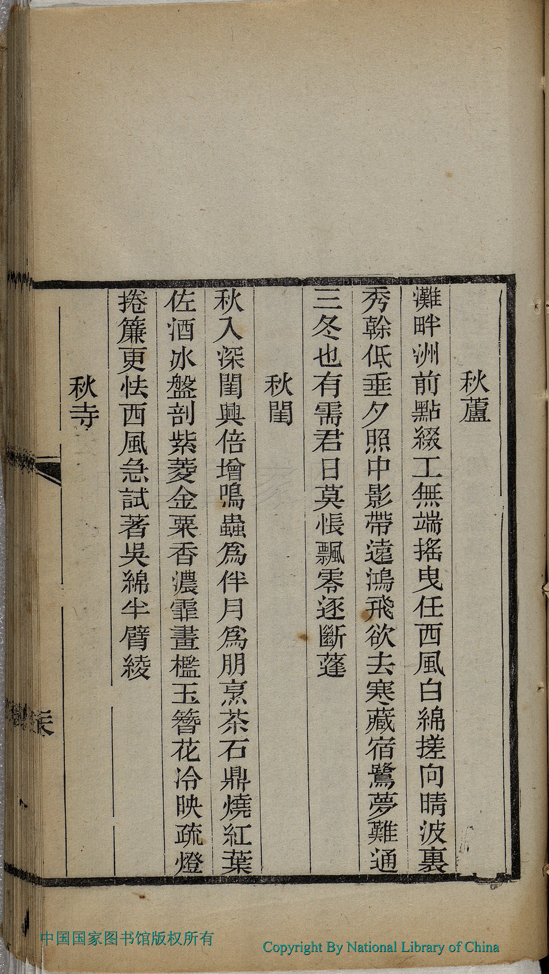 秋蘆
灘畔洲前點綴工無端搖曳任西風白綿搓向晴波裏
秀榦低垂夕照中影帶遠鴻飛欲去寒藏宿鷺夢難通
三冬也有需君日莫悵飄零逐斷蓬
秋閨
秋入深閨興倍增鳴蟲為伴月為朋烹茶石鼎燒紅葉
佐酒冰盤剖紫菱金粟香濃霏畫檻玉簪花冷映疏燈
捲簾更怯西風急試著吳綿半臂綾
秋寺
中国国家图书馆版权所有
Copyright By National Library of China